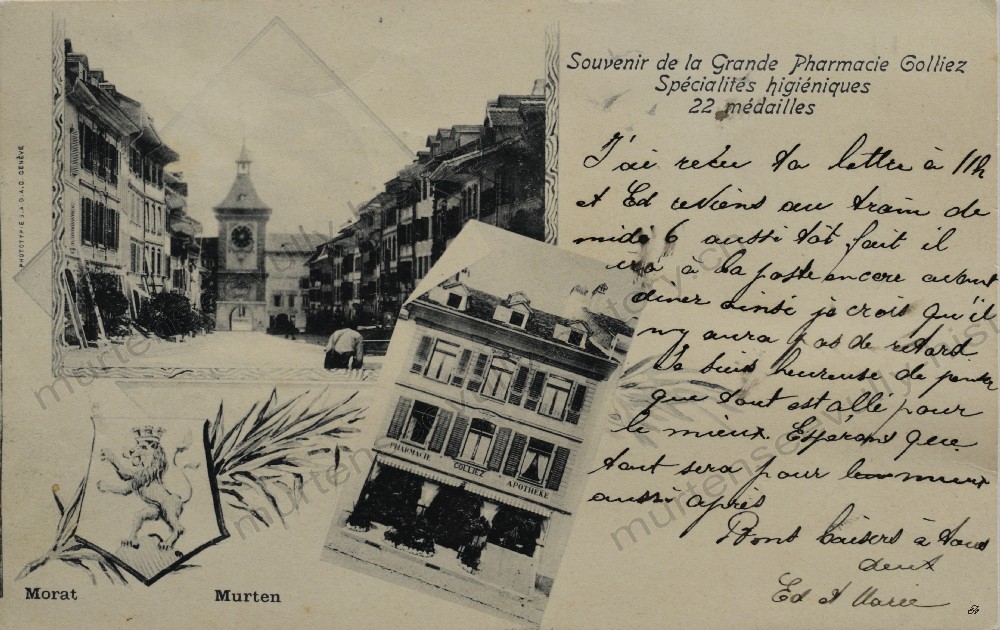 Souvenir de la Grande Pharmacie Golliez
Spécialités higiéniques
22 médailles
J'ai reçu ta lettre à 11h
et Ed reviens au train de
midi 6 aussi tôt fait il
ira à la poste encore avant
diner ainsi je crois qu'il
n'y aura pas de retard
Je suis heureuse de penser
que tout est allé pour
le mieux. Espérons que
tout sera pour le mieux
aussi après
Bons baisers à tous
deux
Ed et Marie
PHOTOTYPIE S.A.D.A.G. GENÈVE
PHARMACIE GOLLIEZ APOTHEKE
Morat Murten